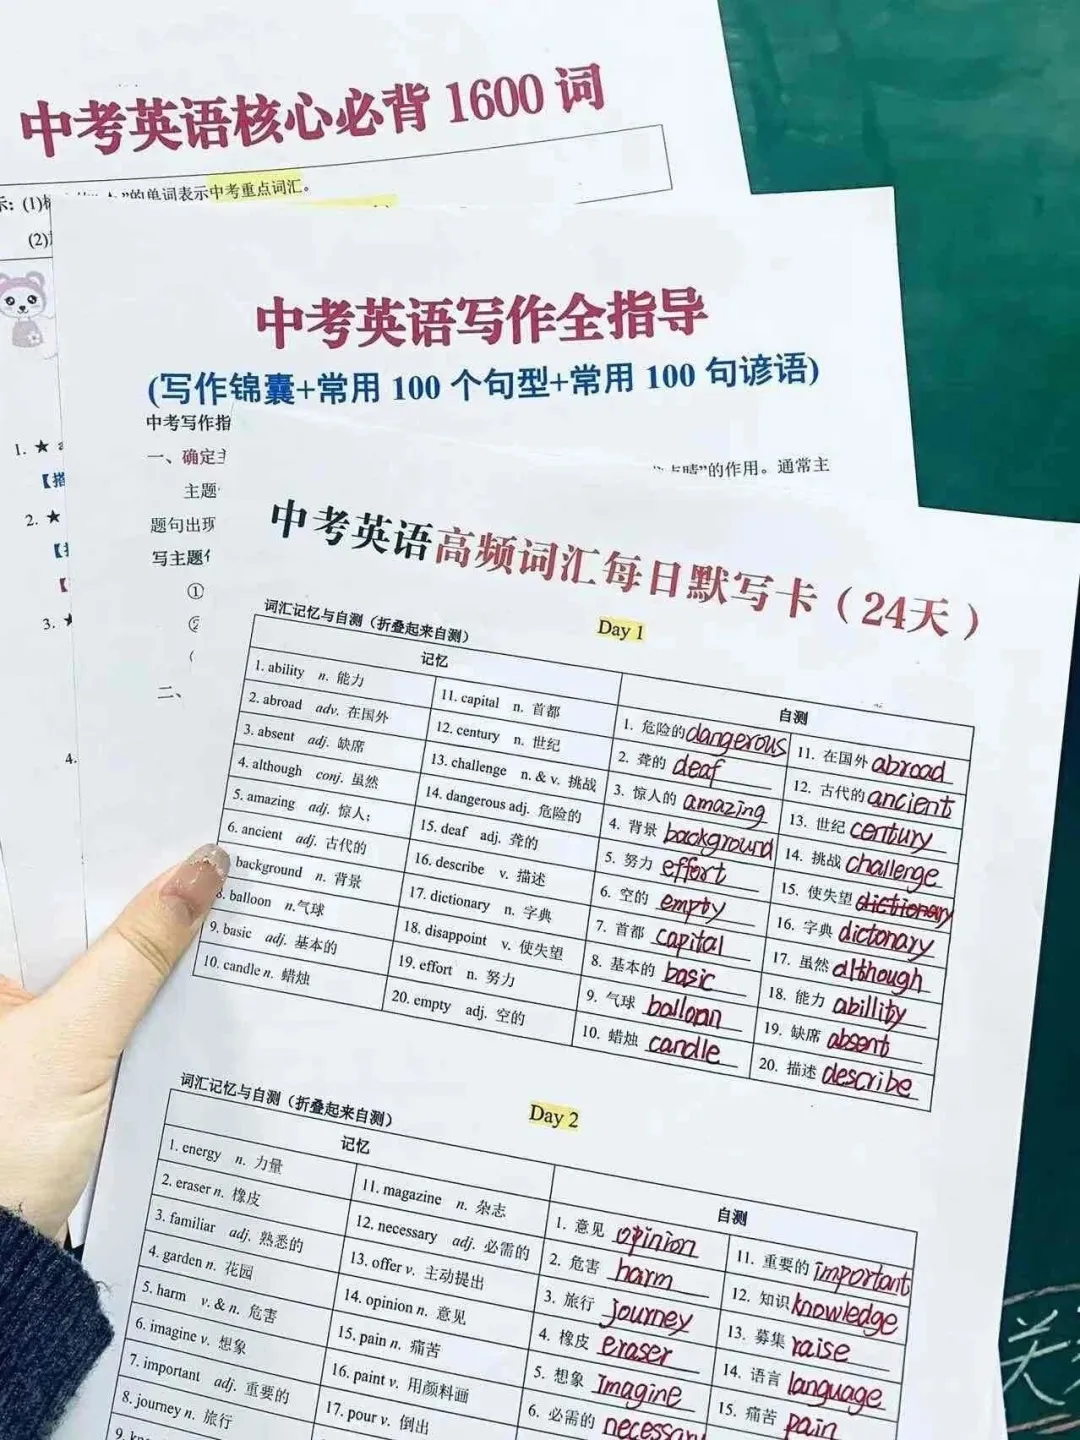 中考英语核心必背 1600 词
示: (1)标 的单词表示中考重点词汇。
(2)
1. ★ a
2. ★
3. ★
4.
中考英语写作全指导
(写作锦囊+常用 100 个句型+常用 100 句谚语)
中考写作指
一、确定主
”的作用。通常主
主题
题句出现
写主题
①
②
二、
中考英语高频词汇每日默写卡（24天）
词汇记忆与自测（折叠起来自测）
Day 1
记忆
自测
1. ability n. 能力
2. abroad adv. 在国外
3. absent adj. 缺席
4. although conj. 虽然
5. amazing adj. 惊人;
6. ancient adj. 古代的
background n. 背景
8. balloon n.气球
9. basic adj. 基本的
10. candle n. 蜡烛
11. capital n. 首都
12. century n. 世纪
13. challenge n. & v. 挑战
14. dangerous adj. 危险的
15. deaf adj. 聋的
16. describe v. 描述
17. dictionary n. 字典
18. disappoint v. 使失望
19. effort n. 努力
20. empty adj. 空的
1. 危险的 dangerous
2. 聋的 deaf
3. 惊人的 amazing
4. 背景 background
5. 努力 effort
6. 空的 empty
7. 首都 capital
8. 基本的 basic
9. 气球 balloan
10. 蜡烛 candle
11. 在国外 abroad
12. 古代的 ancient
13. 世纪 century
14. 挑战 challenge
15. 使失望 dictionary
16. 字典 dictonary
17. 虽然 although
18. 能力 abillity
19. 缺席 absent
20. 描述 describe
词汇记忆与自测（折叠起来自测）
Day 2
记忆
自测
1. energy n. 力量
2. eraser n. 橡皮
3. familiar adj. 熟悉的
4. garden n. 花园
5. harm v. & n. 危害
6. imagine v. 想象
7. important adj. 重要的
8. journey n. 旅行
9.
11. magazine n. 杂志
12. necessary adj. 必需的
13. offer v. 主动提出
14. opinion n. 意见
15. pain n. 痛苦
16. paint v. 用颜料画
17. pour v. 倒出
1. 意见 opinion
2. 危害 harm
3. 旅行 journey
4. 橡皮 eraser
5. 想象 imagine
6. 必需的 necessary
11. 重要的 important
12. 知识 knowledge
13. 募集 raise
14. 语言 language
15. 痛苦 pain
关